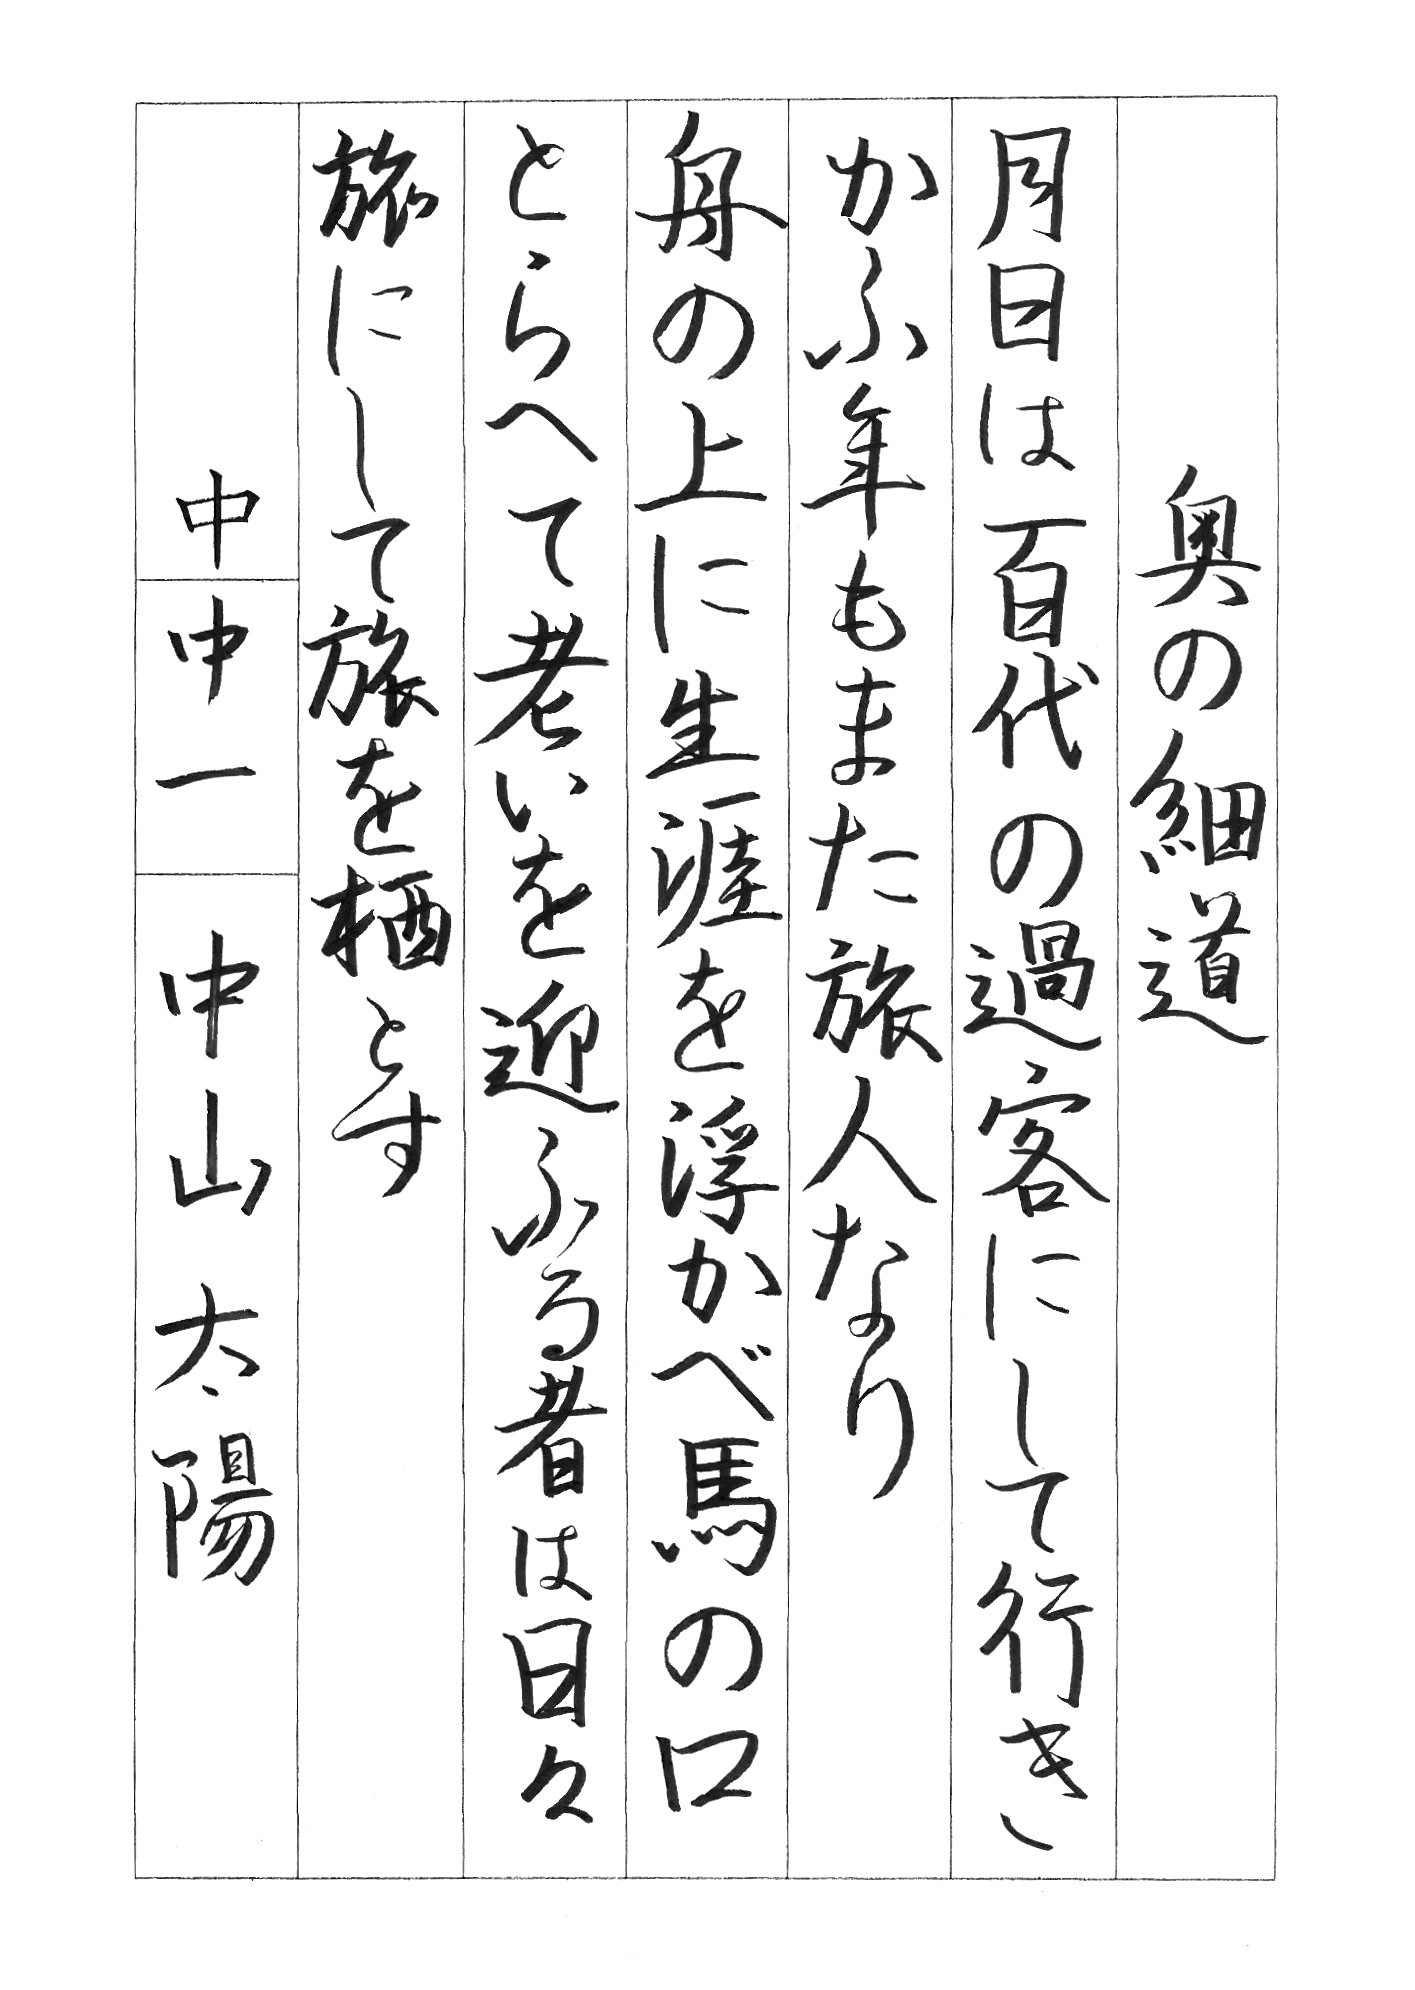 奥の細道
月日は百代の過客にして行き
かふ年もまた旅人なり
舟の上に生涯を浮かべ馬の口
とらへて老いを迎ふる者は日々
旅にして旅を栖とす
中 中一 中山太陽